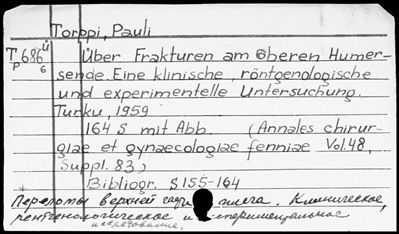 Torppi, Pauli
Tp 686 ü 6
Über Frakturen am oberen Humer-
sende. Eine klinische, röntgenologische
und experimentelle Untersuchung.
Turku, 1959
164 S mit Abb. (Annales chirur-
giae et gynaecologiae fenniae Vol.48,
Suppl. 83)
Bibliogr. S 155-164
Переломы верхней плеча. Клиническое,
рентгенологическое и
исследование.